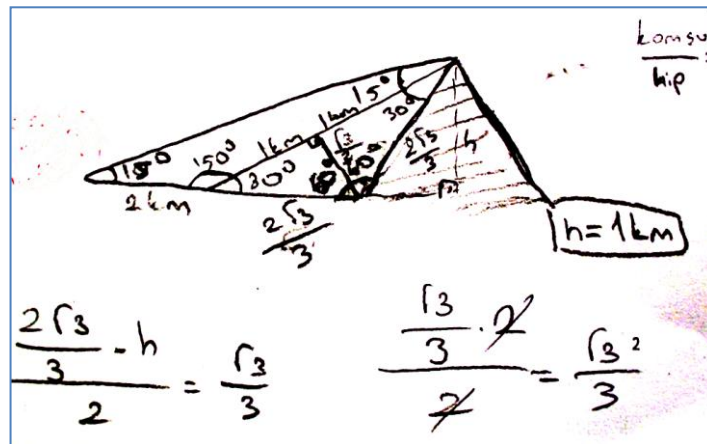 komsu
hip
15°
30°
1km
1km
15°
150°
30°
√3
2√3/3
h
2km
2√3/3
h=1km
2√3/3 - h / 2 = √3/3
√3/3 · 2 / 2 = √3²/3